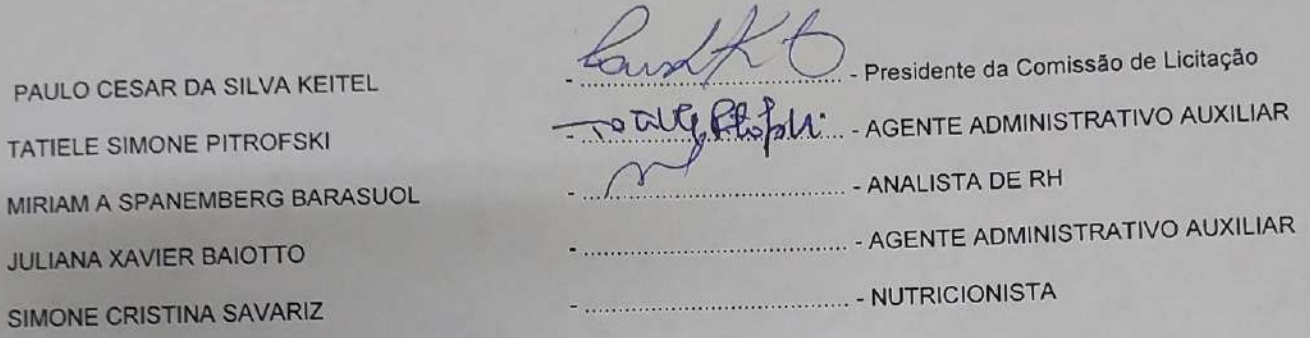 PAULO CESAR DA SILVA KEITEL - ........................................ - Presidente da Comissão de Licitação
TATIELE SIMONE PITROFSKI - ........................................ - AGENTE ADMINISTRATIVO AUXILIAR
MIRIAM A SPANEMBERG BARASUOL - ........................................ - ANALISTA DE RH
JULIANA XAVIER BAIOTTO - ........................................ - AGENTE ADMINISTRATIVO AUXILIAR
SIMONE CRISTINA SAVARIZ - ........................................ - NUTRICIONISTA